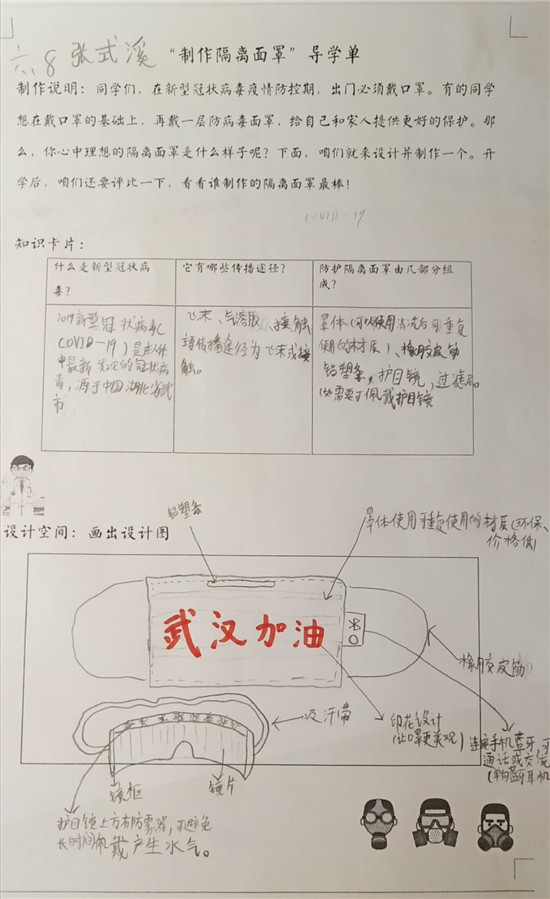 六.8 张式溪 “制作隔离面罩”导学单
制作说明：同学们，在新型冠状病毒疫情防控期，出门必须戴口罩。有的同学
想在戴口罩的基础上，再戴一层防病毒面罩，给自己和家人提供更好的保护。那
么，你心中理想的隔离面罩是什么样子呢？下面，咱们就来设计并制作一个。开
学后，咱们还要评比一下，看看谁制作的隔离面罩最棒！
COVID-19
知识卡片：
什么是新型冠状病
毒？
2019新型冠状病毒(
COVID-19）是
发现的冠状病
毒，源于中国湖北省武汉
市
它有哪些传播途径？
飞沫、气溶胶、接触
传播途径为飞沫或接
触。
防护隔离面罩由几部分组
成？
罩体（可以使用清洗后可重复
使用的材质）、橡胶皮筋
铝塑条，护目镜，过滤
（如需要可佩戴护目镜
设计空间：画出设计图
铝塑条
罩体使用可重复使用的材质（环保、
价格低）
武汉加油
橡胶皮筋
吸汗带
印花设计
（让口罩更美观）
连接手机蓝牙，可
通话或交流
耳机
镜框
镜片
护目镜上方有防雾器，可避免
长时间佩戴产生水气。